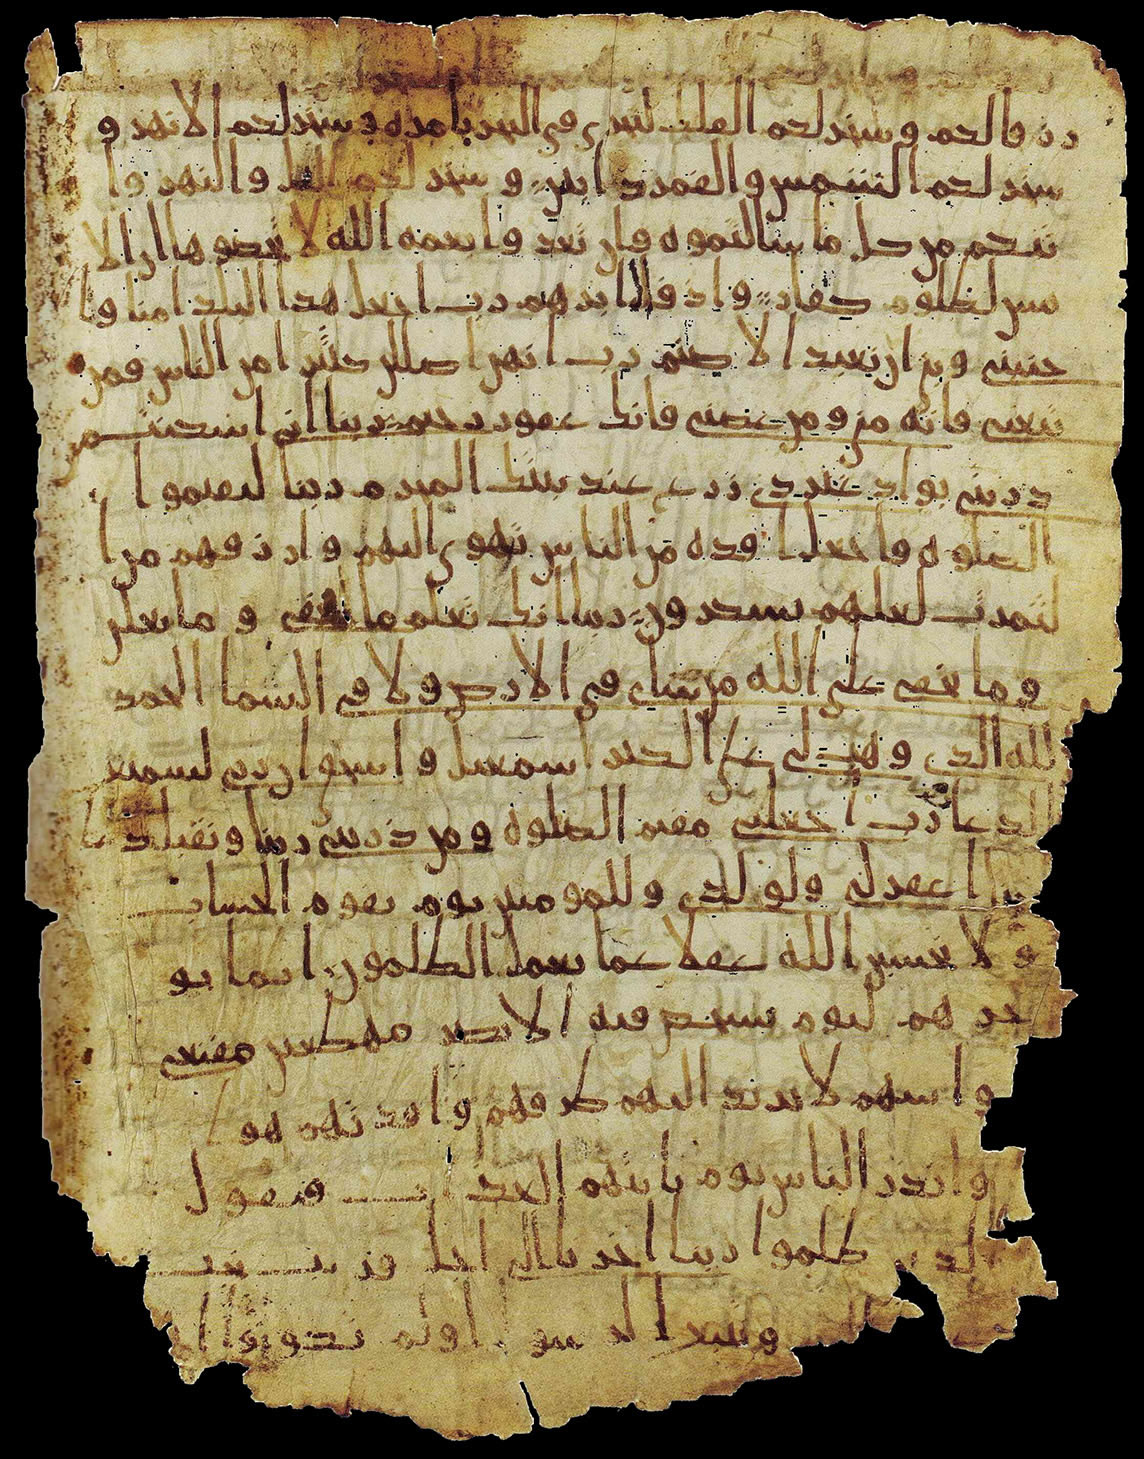 رزقا لكم وسخر لكم الفلك لتجري في البحر بامره وسخر لكم الانهر و
سخر لكم الشمس والقمر دابين وسخر لكم اليل والنهر وا
تيكم من كل ما سالتموه وان تعدوا نعمه الله لا تحصوها ان الا
نسن لظلوم كفار واذ قال ابرهيم رب اجعل هذا البلد امنا وا
جنبني وبني ان نعبد الاصنم رب انهن اضللن كثيرا من الناس فمن
تبعني فانه مني ومن عصني فانك غفور رحيم ربنا اني اسكنت من
ذريتي بواد غير ذي زرع عند بيتك المحرم ربنا ليقيموا
الصلوه فاجعل افده من الناس تهوي اليهم وارزقهم من ا
لثمرت لعلهم يشكرون ربنا انك تعلم ما نخفي وما نعلن
وما يخفى على الله من شاي في الارض ولا في السما الحمد
لله الذي وهب لي على الكبر اسمعيل واسحق ان ربي لسميع
الدعا رب اجعلني مقيم الصلوه ومن ذريتي ربنا وتقبل دعا
ربنا اغفر لي ولولدي وللمومنين يوم يقوم الحساب
ولا تحسبن الله غفلا عما يعمل الظلمون انما يو
خرهم ليوم تشخص فيه الابصر مهطعين مقنعي
روسهم لا يرتد اليهم طرفهم وافدتهم هوا
وانذر الناس يوم ياتيهم العذاب فيقول
الذين ظلموا ربنا اخرنا الى اجل قريب نجب
ونتبع الرسل اولم تكونوا ا